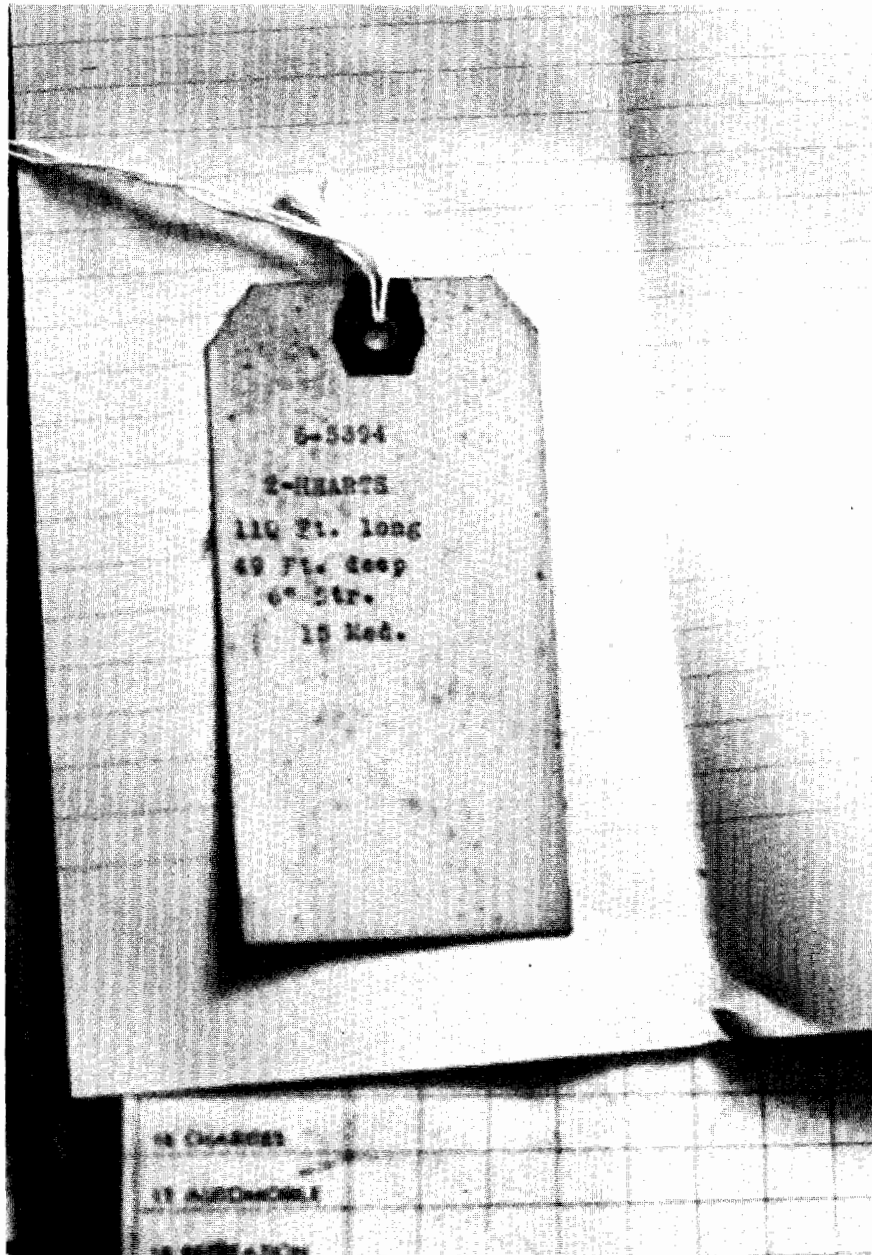 6-5394
2-HEARTS
110 Ft. long
49 Ft. deep
6" Str.
15 Med.
16 CHARGES
17 AUTOMOBILE
18